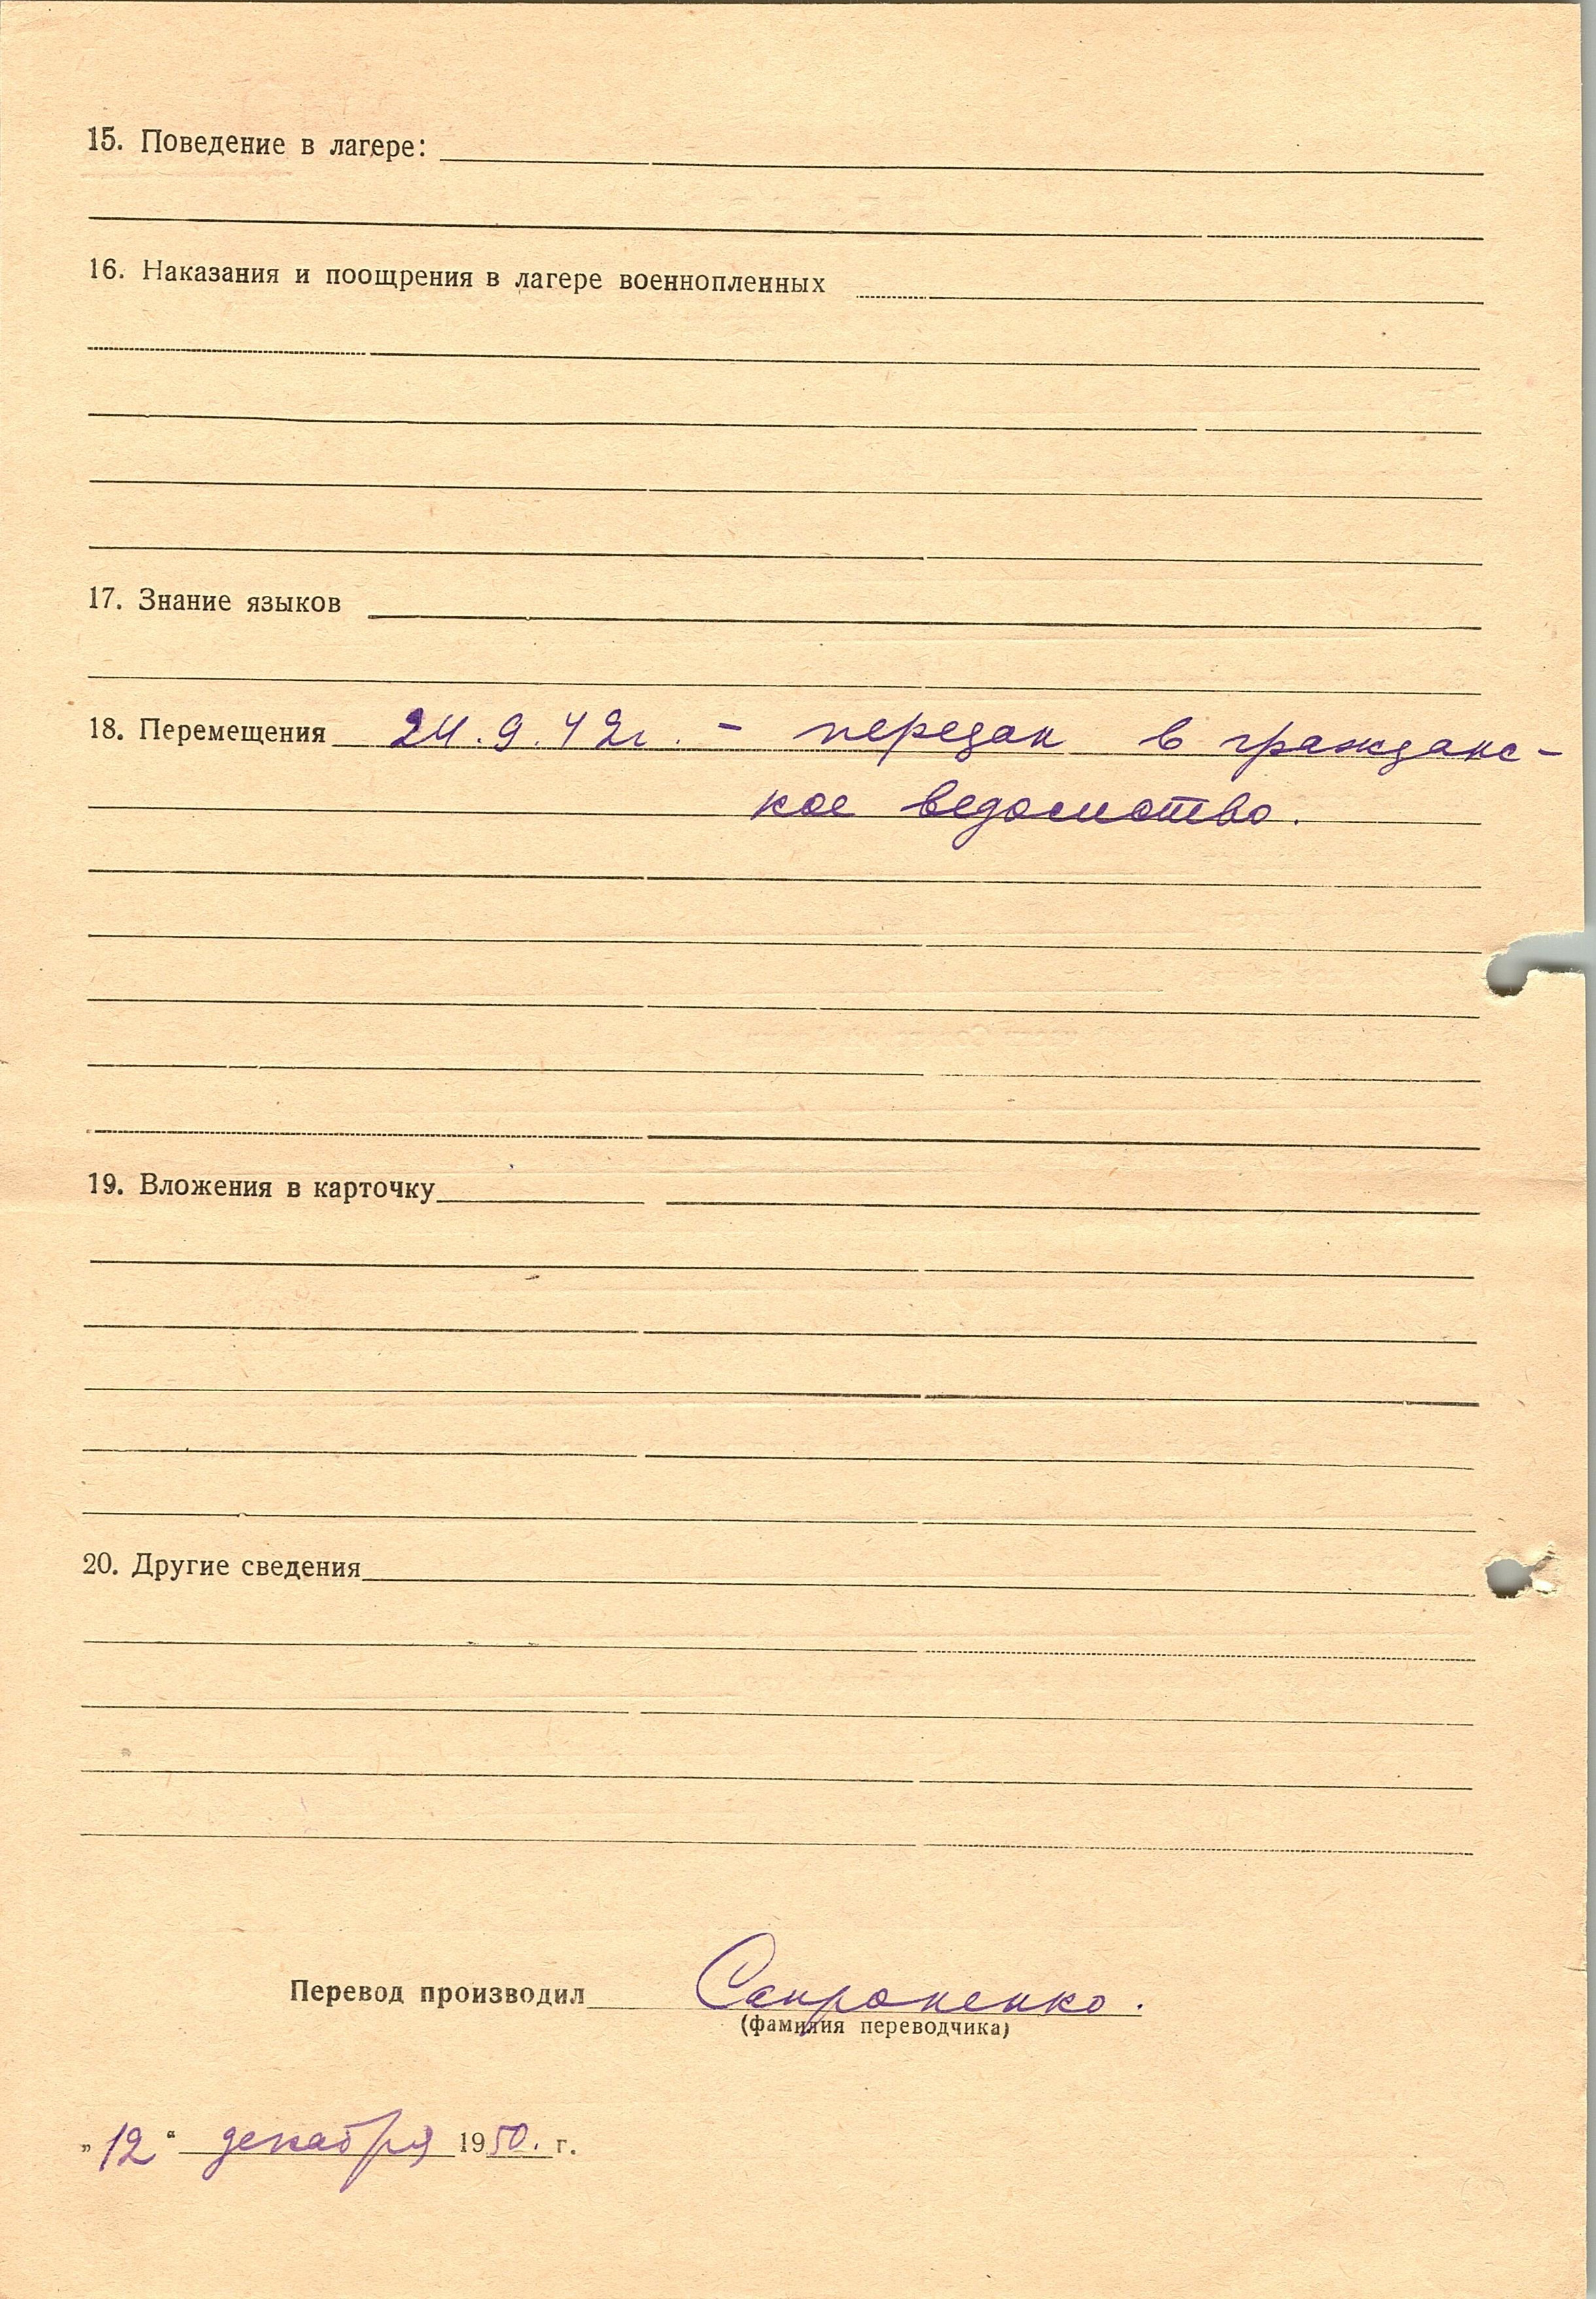 15. Поведение в лагере:
16. Наказания и поощрения в лагере военнопленных
17. Знание языков
18. Перемещения 24.9.42г. - передан в гражданс-
кое ведомство.
19. Вложения в карточку
20. Другие сведения
Перевод производил Сапроненко.
(фамилия переводчика)
„12“ декабря 1950. г.